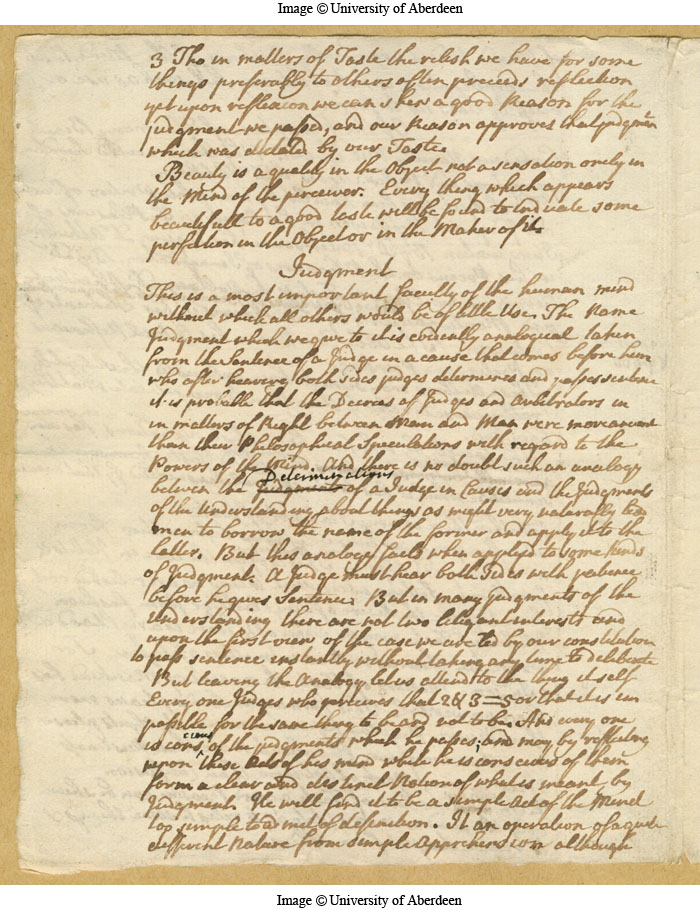 Image © University of Aberdeen
3 Tho in matters of Taste the relish we have for some
things preferably to others often preceeds reflection
yet upon reflexion we can shew a good Reason for the
judgment we passed, and our Reason approves that judgmt
which was dictated by our Taste.
Beauty is a quality in the Object not a sensation onely in
the Mind of the perceiver. Every thing which appears
beautifull to a good taste will be found to indicate some
perfection in the Object or in the Maker of it.
Judgment
This is a most important faculty of the human mind
without which all others would be of little Use. The Name
Judgment which we give to it is evidently analogical taken
from the Sentence of a Judge in a cause that comes before him
who after hearing both sides judges determines and passes sentence
it is probable that the Decrees of Judges and Arbitrators in
in matters of Right between Man and Man were more ancient
than their Philosophical Speculations with regard to the
Powers of the Mind. And there is no doubt such an analogy
Determinations
between the Judgments of a Judge in Causes and the Judgments
of the Understanding about things as might very naturally lead
men to borrow the name of the former and apply it to the
latter. But this analogy fails when applied to some kinds
of Judgment. A Judge must hear both Sides with patience
before he gives Sentence. But in many judgments of the
Understanding there are not two litigant interests and
upon the first view of the case we are led by our constitution
to pass sentence instantly without taking any time to deliberate
But leaving the Analogy let us attend to the thing it self
Every one Judges who perceives that 2 & 3 = 5 or that it is im
possible for the same thing to be and not to be. And every one
is conscious of the judgments which he passes; and may by reflecting
upon these Acts of his mind while he is conscious of them
form a clear and distinct Notion of what is meant by
Judgment. He will find it to be a simple Act of the Mind
too simple to admit of definition. It an operation of a quite
different Nature from simple Apprehension although
Image © University of Aberdeen